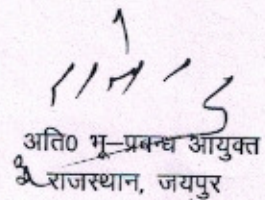 अति० भू–प्रबन्ध आयुक्त
राजस्थान, जयपुर